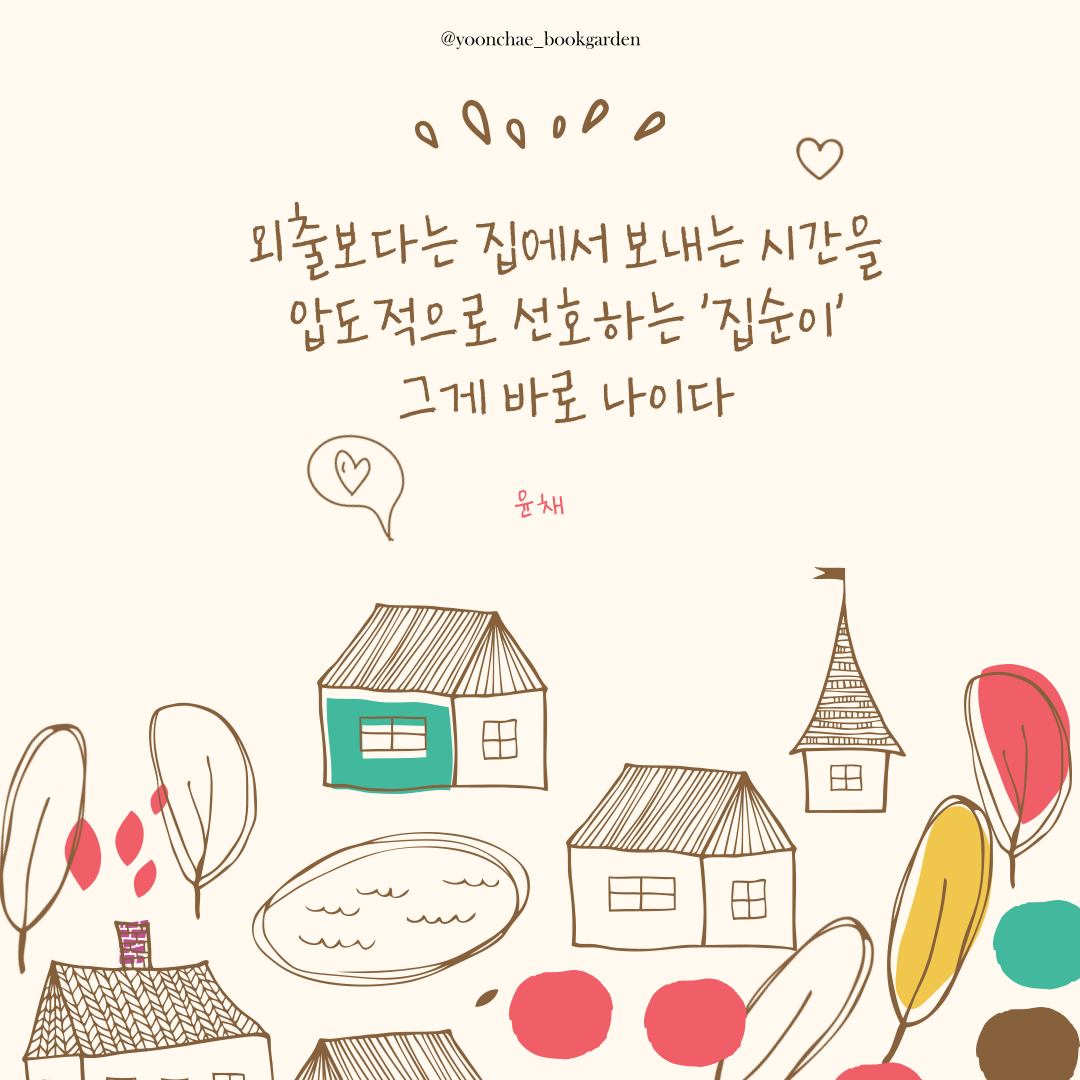 @yoonchae_bookgarden
외출보다는 집에서 보내는 시간을
압도적으로 선호하는 '집순이'
그게 바로 나이다
윤채